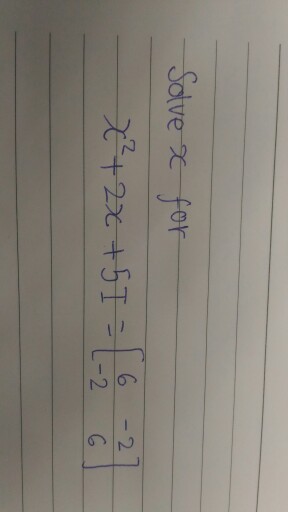 Solve x for
x² + 2x + 5I = [6 -2
-2 6]